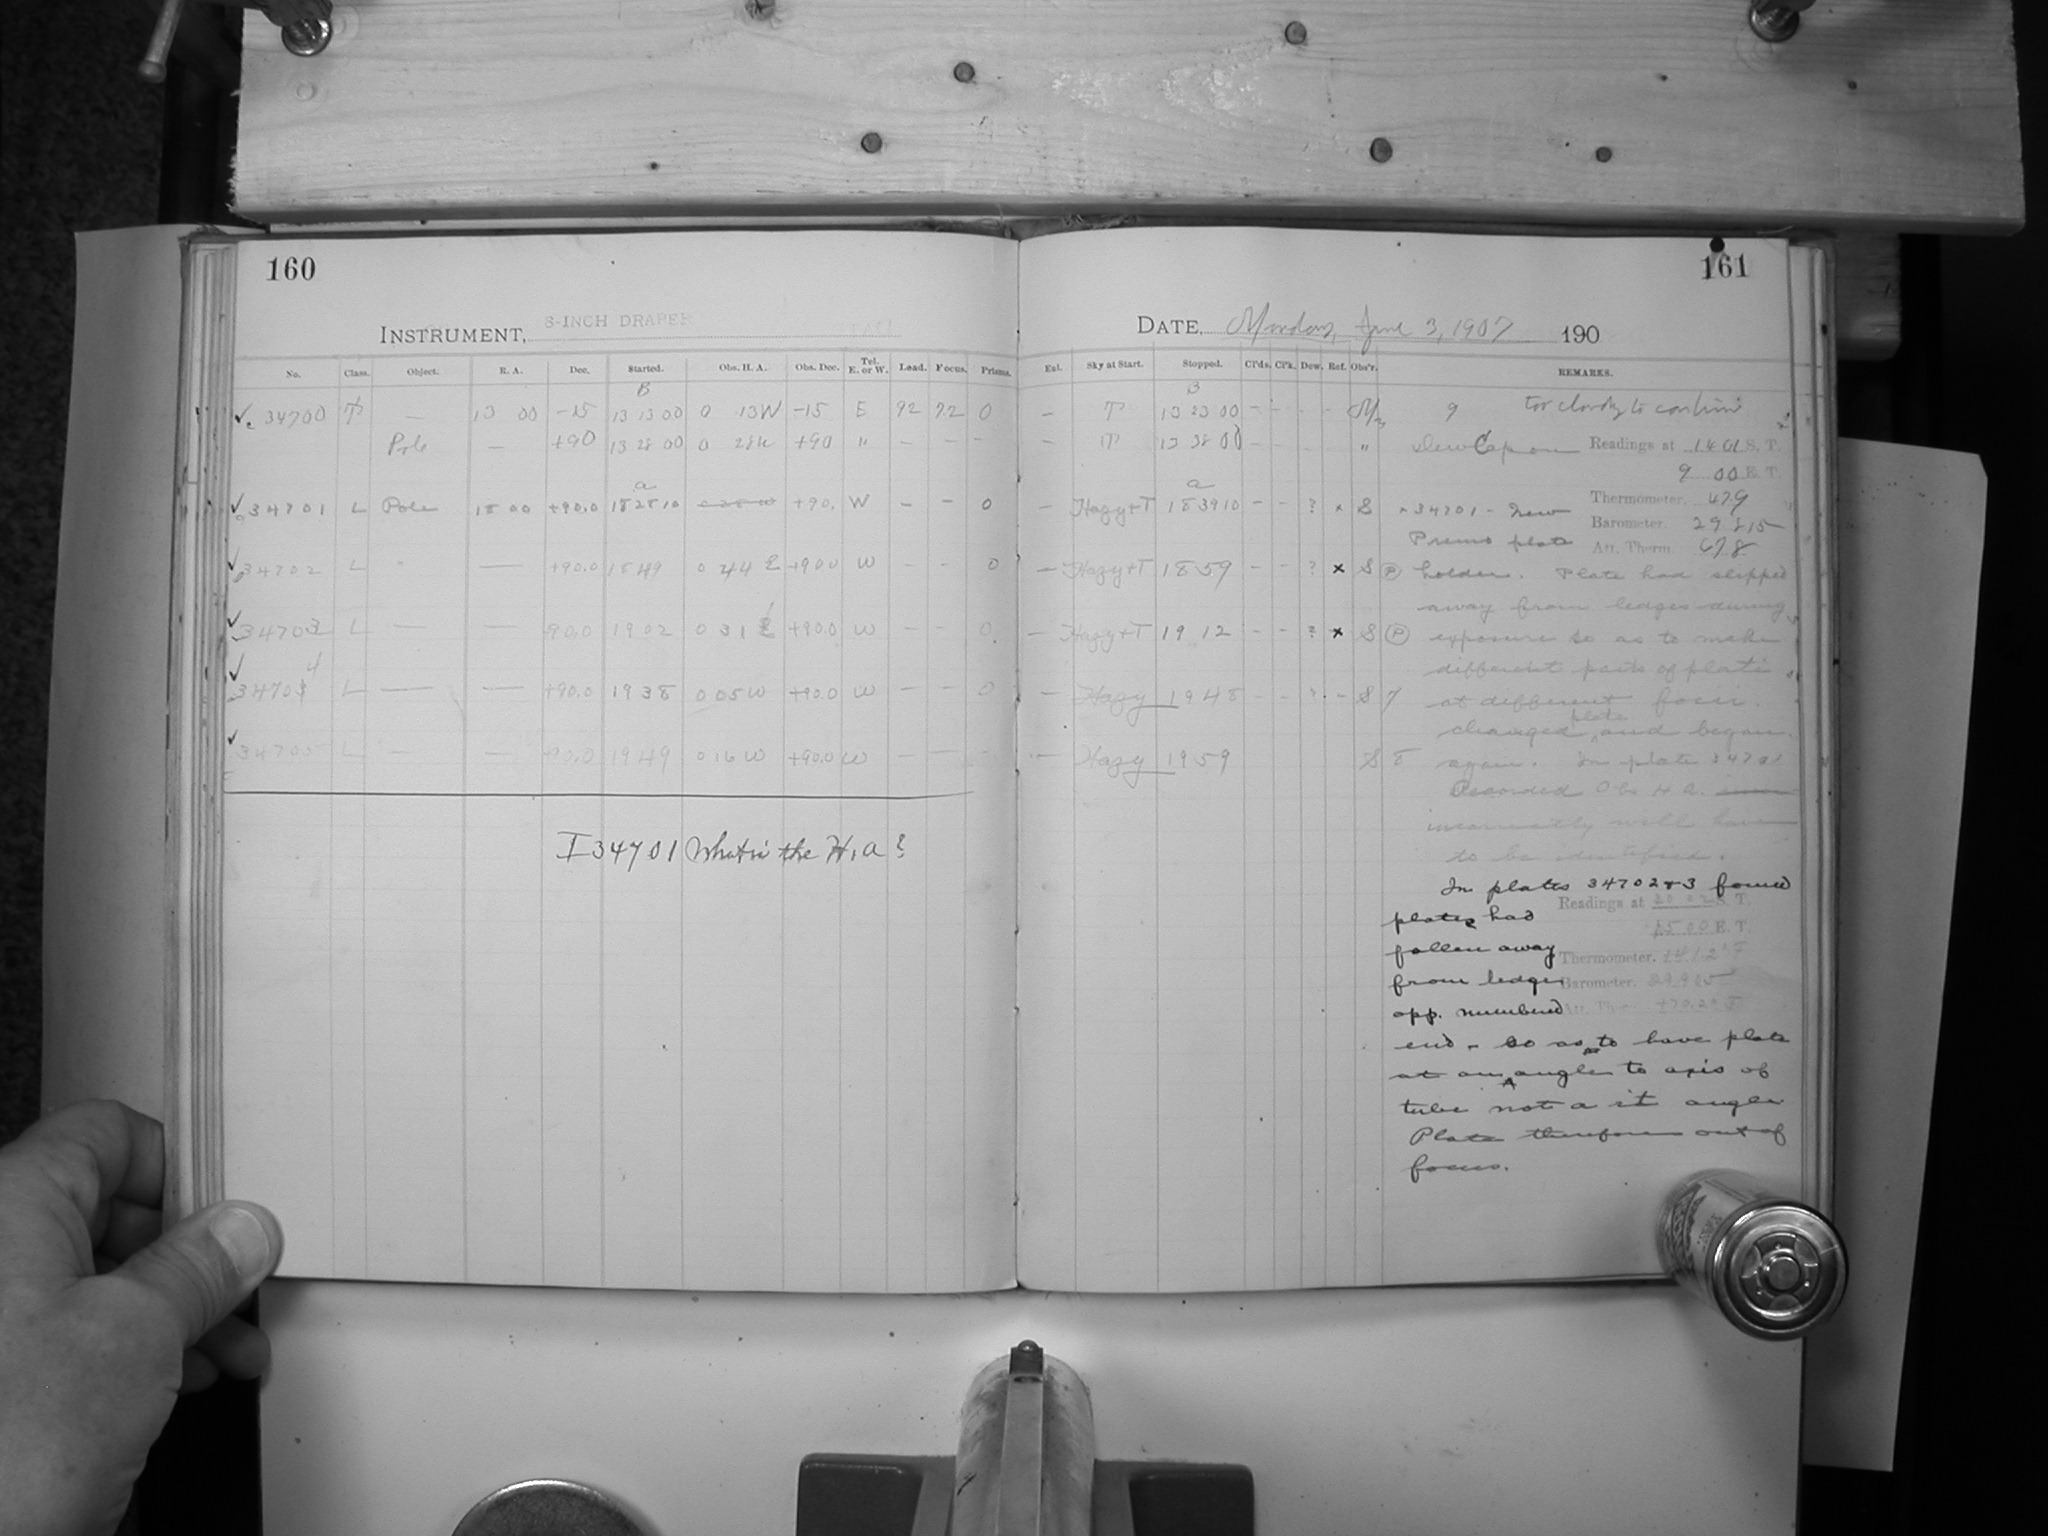 160
161
INSTRUMENT, 8-INCH DRAPER
DATE, Monday, June 3, 1907 190
No. Class. Object. R. A. Dec. Started. Obs. H. A. Obs. Dec. Tel. E. or W. Load. Focus. Prisms.
Ext. Sky at Start. Stopped. Cl'ds. Cl'k. Dew. Ref. Obs'r. REMARKS.
B B
34700 T — 13 00 -15 13 13 00 0 13W -15 E 92 7.2 0 — T 13 23 00 - - - - 9 too cloudy to confirm
Pole — +90 13 28 00 0 28W +90 " — — — T 13 38 00 - - " Dew Cap on Readings at 14 01 S. T.
9 00 E. T.
a a
34701 L Pole 18 00 +90.0 18 28 10 +90. W — — 0 — Hazy+T 18 39 10 - - ? x S x 34701 - New
Thermometer. 479
Barometer. 29.815
Premo plate Att. Therm. 678
34702 L " — +90.0 18 49 0 44 E +900 W — — 0 — Hazy+T 18 59 - - ? x S P holder. Plate had slipped
away from ledges during
34703 L — — 90.0 19 02 0 31 E +90.0 W — — 0 — Hazy+T 19 12 - - ? x S P exposure so as to make
different parts of plate
34704 L — — +90.0 19 38 0 05 W +90.0 W — — 0 — Hazy 19 48 - - ? - S 7 at different focii.
changed plate and began
34705 L — — 90.0 19 49 0 16 W +90.0 W — — — — Hazy 19 59 S 8 again. In plate 34701
Recorded Obs H. A.
incorrectly will have
to be identified.
I 34701 What is the H. A?
In plates 34702 & 3 found
Readings at 20 02 S. T.
plates had
15 00 E. T.
fallen away
Thermometer.
from ledges
Barometer.
opp. numbered
Att. Ther.
end - so as to have plate
at an angle to axis of
tube not a rt angle
Plate therefore out of
focus.